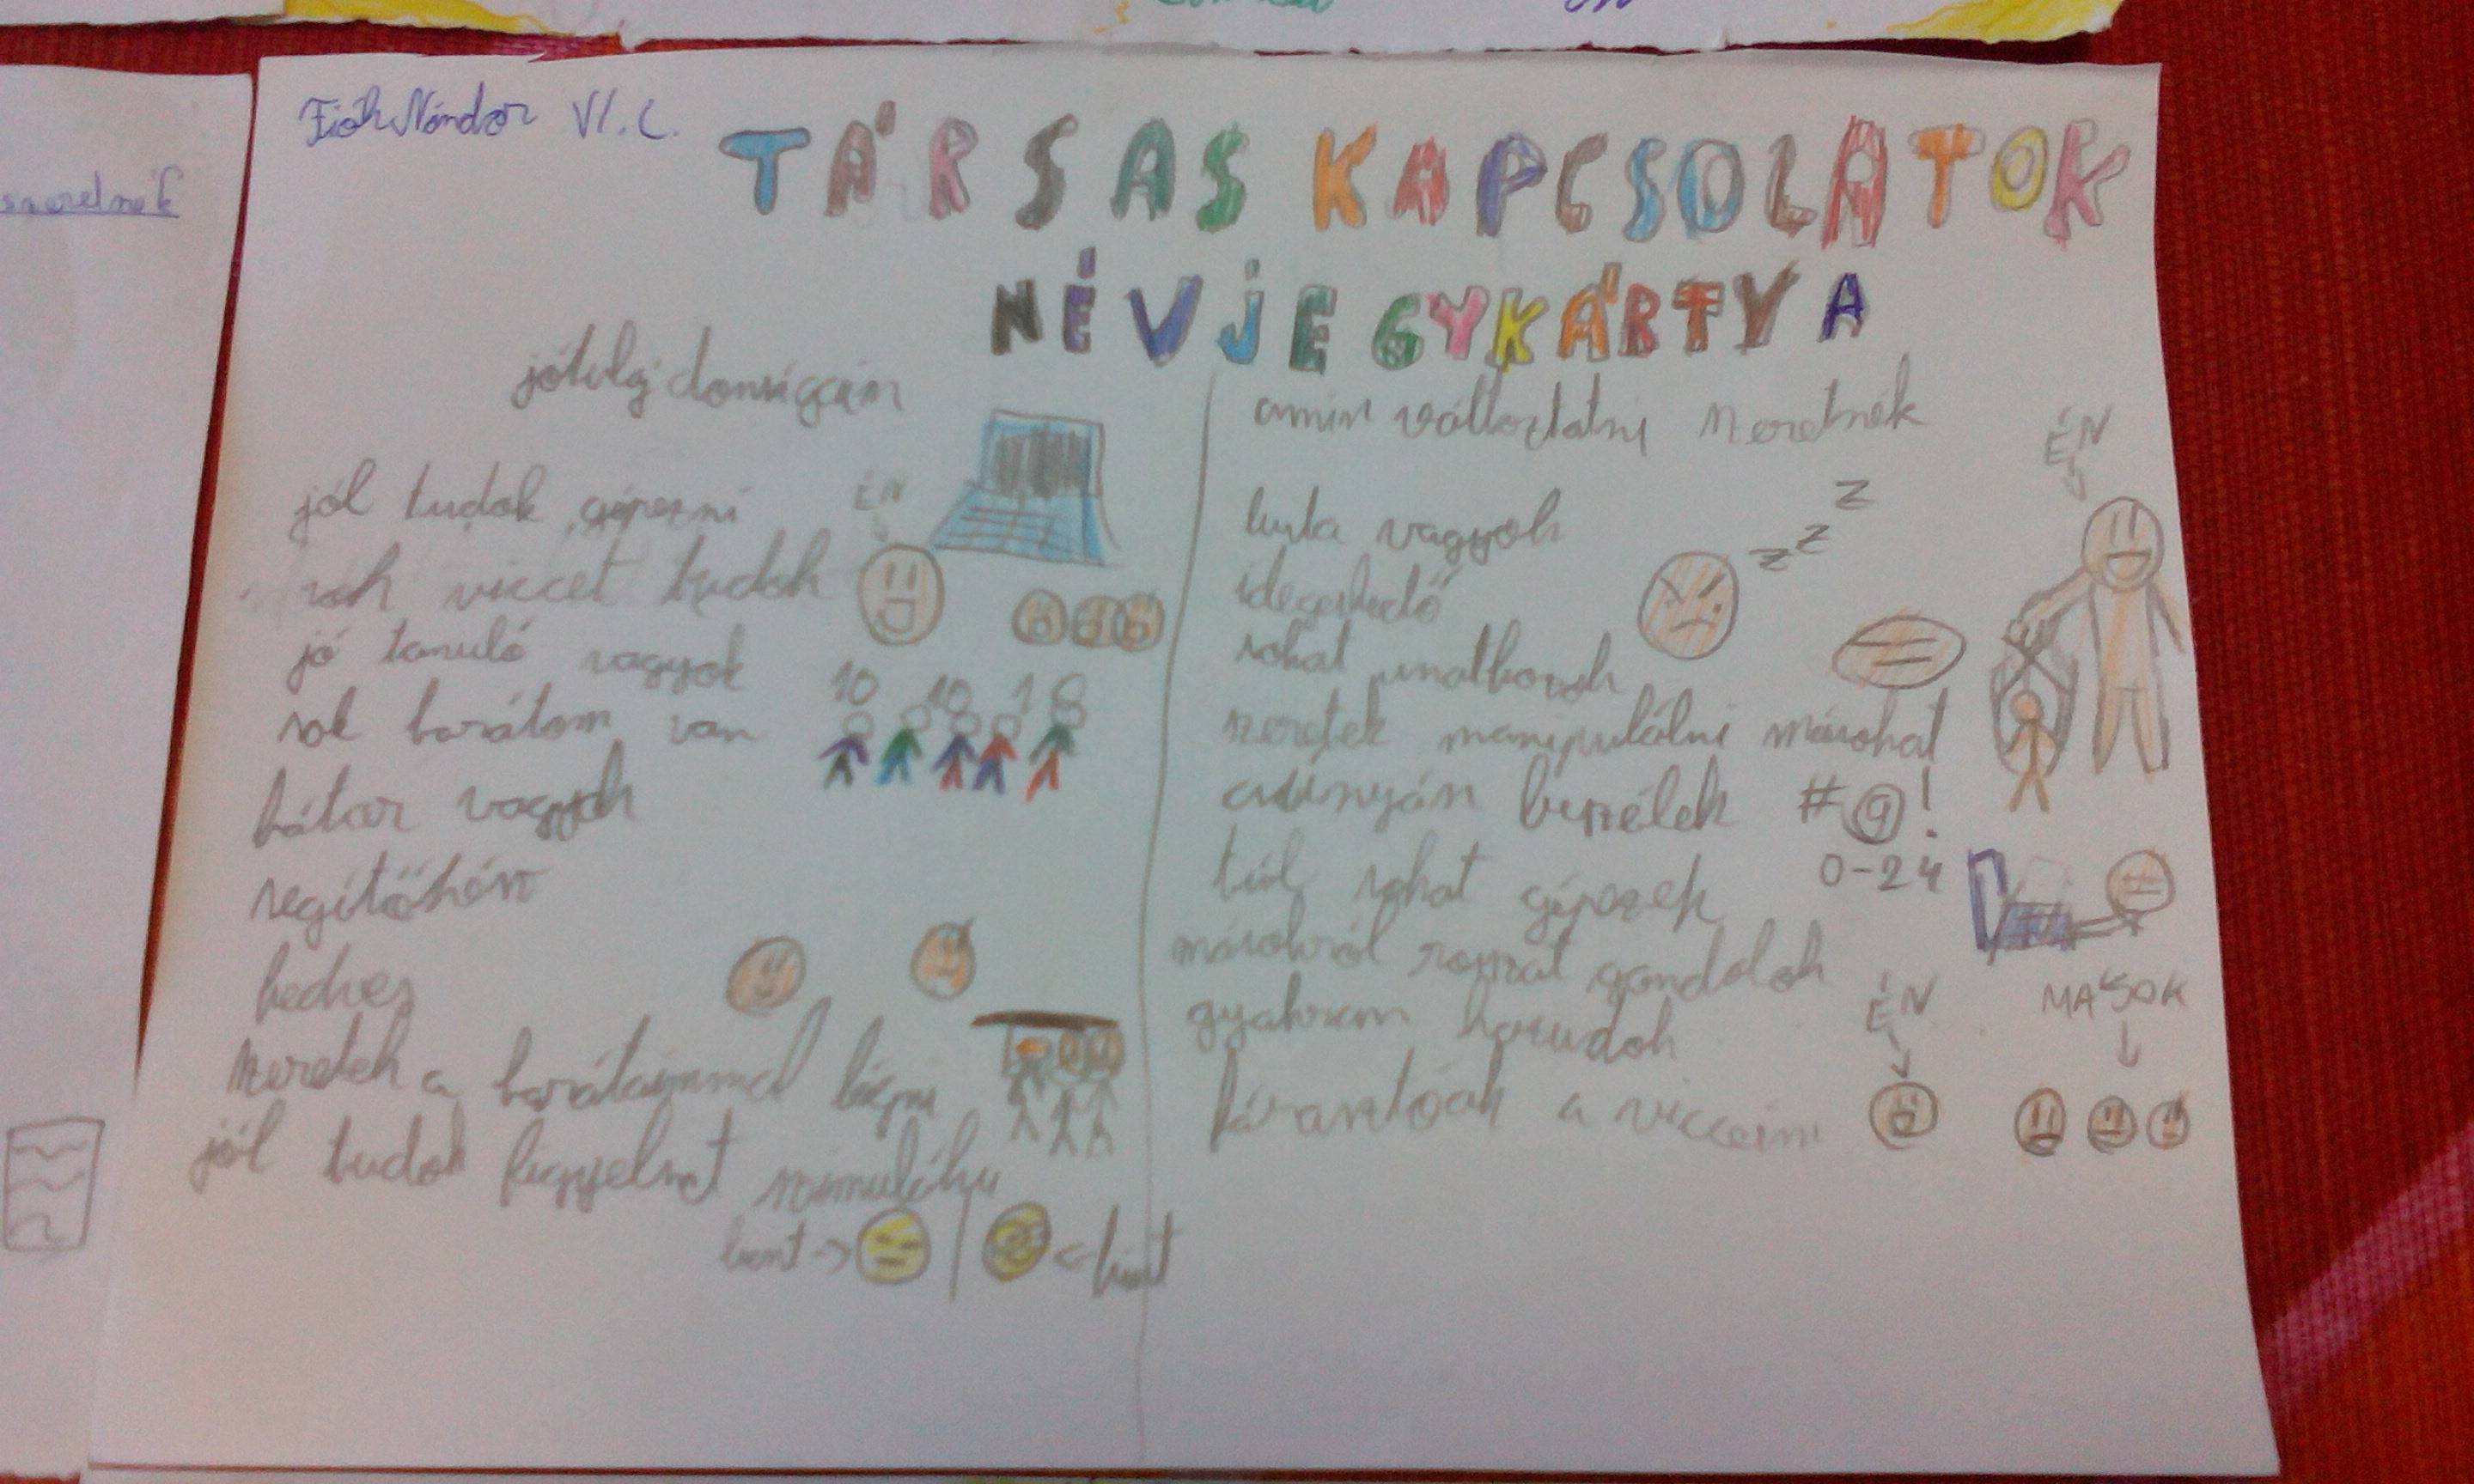 szeretnék
Fiók Nándor VI. C.
TÁRSAS KAPCSOLATOK
NÉVJEGYKÁRTYA
jótulajdonságaim
jól tudok gépezni
ÉN
sok viccet tudok
jó tanuló vagyok
10 10 10
sok barátom van
bátor vagyok
segítőkész
kedves
szeretek a barátaimmal lógni
jól tudok figyelmet szimulálni
bent -> | <- kint
amin változtatni szeretnék
ÉN
lusta vagyok
z z z
idegeskedő
sokat unatkozok
szeretek manipulálni másokat
csúnyán beszélek #@!
túl sokat gépezek 0-24
másokról rosszat gondolok
gyakran hazudok
ÉN
MÁSOK
fárasztóak a vicceim